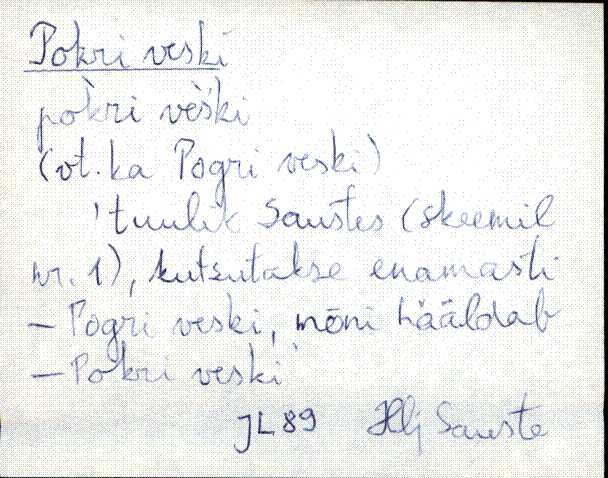 Pokri veski
pok̀ri vèški
(vt. ka Pogri veski)
'tuulik Saustes (skeemil
nr. 1), kutsutakse enamasti
– Pogri veski, mõni hääldab
– Pokri veski'
JL 89 Hlj Sauste